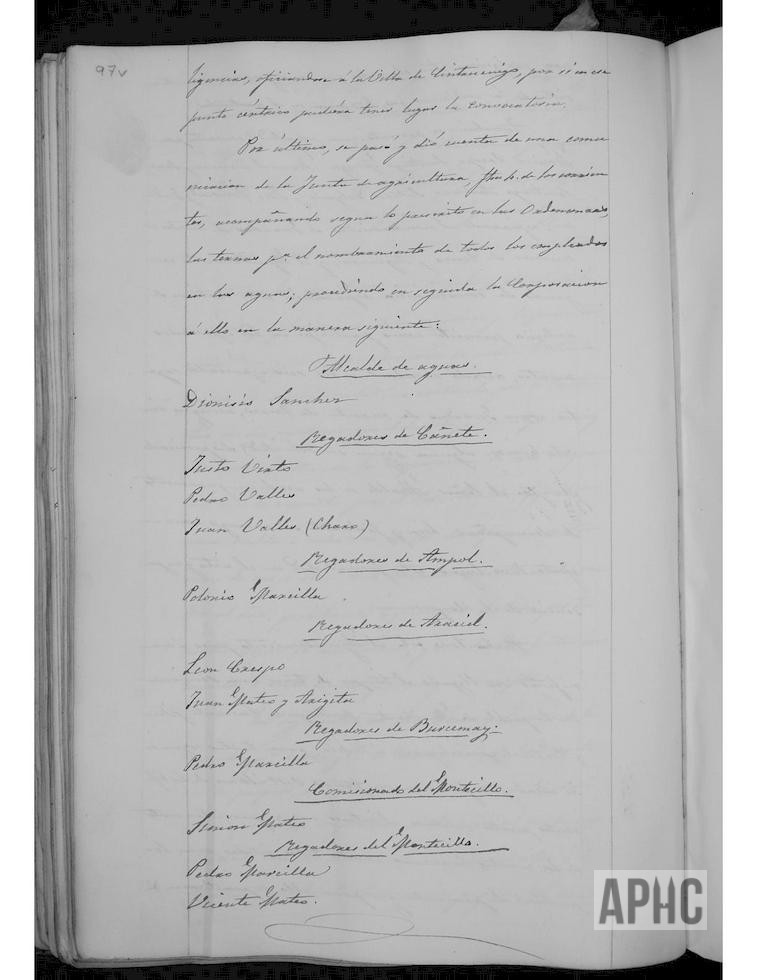 97v
ligencias, oficiandose á la Villa de Cintruenigo, por si en ese
punto céntrico pudiera tener lugar la convocatoria.
Por último, se pasó y dió cuenta de una comu
nicacion de la Junta de agricultura, fha de los corrien
tes, acompañando segun lo prescrito en las Ordenanzas,
las ternas pa el nombramiento de todos los empleados
en las aguas; procediendo en seguida la Corporacion
á ello en la manera siguiente:
Alcalde de aguas.
Dionisio Sanchez
Regadores de Cañete.
Justo Virto
Pedro Valles
Juan Valles (Charo)
Regadores de Ampol.
Polonio Marcilla
Regadores de Araciel.
Leon Crespo
Juan Mateo y Arigita
Regadores de Burceman.
Pedro Marcilla
Comisionado del Montecillo.
Simon Mateo
Regadores del Montecillo.
Pedro Marcilla
Vicente Mateo.
APHC